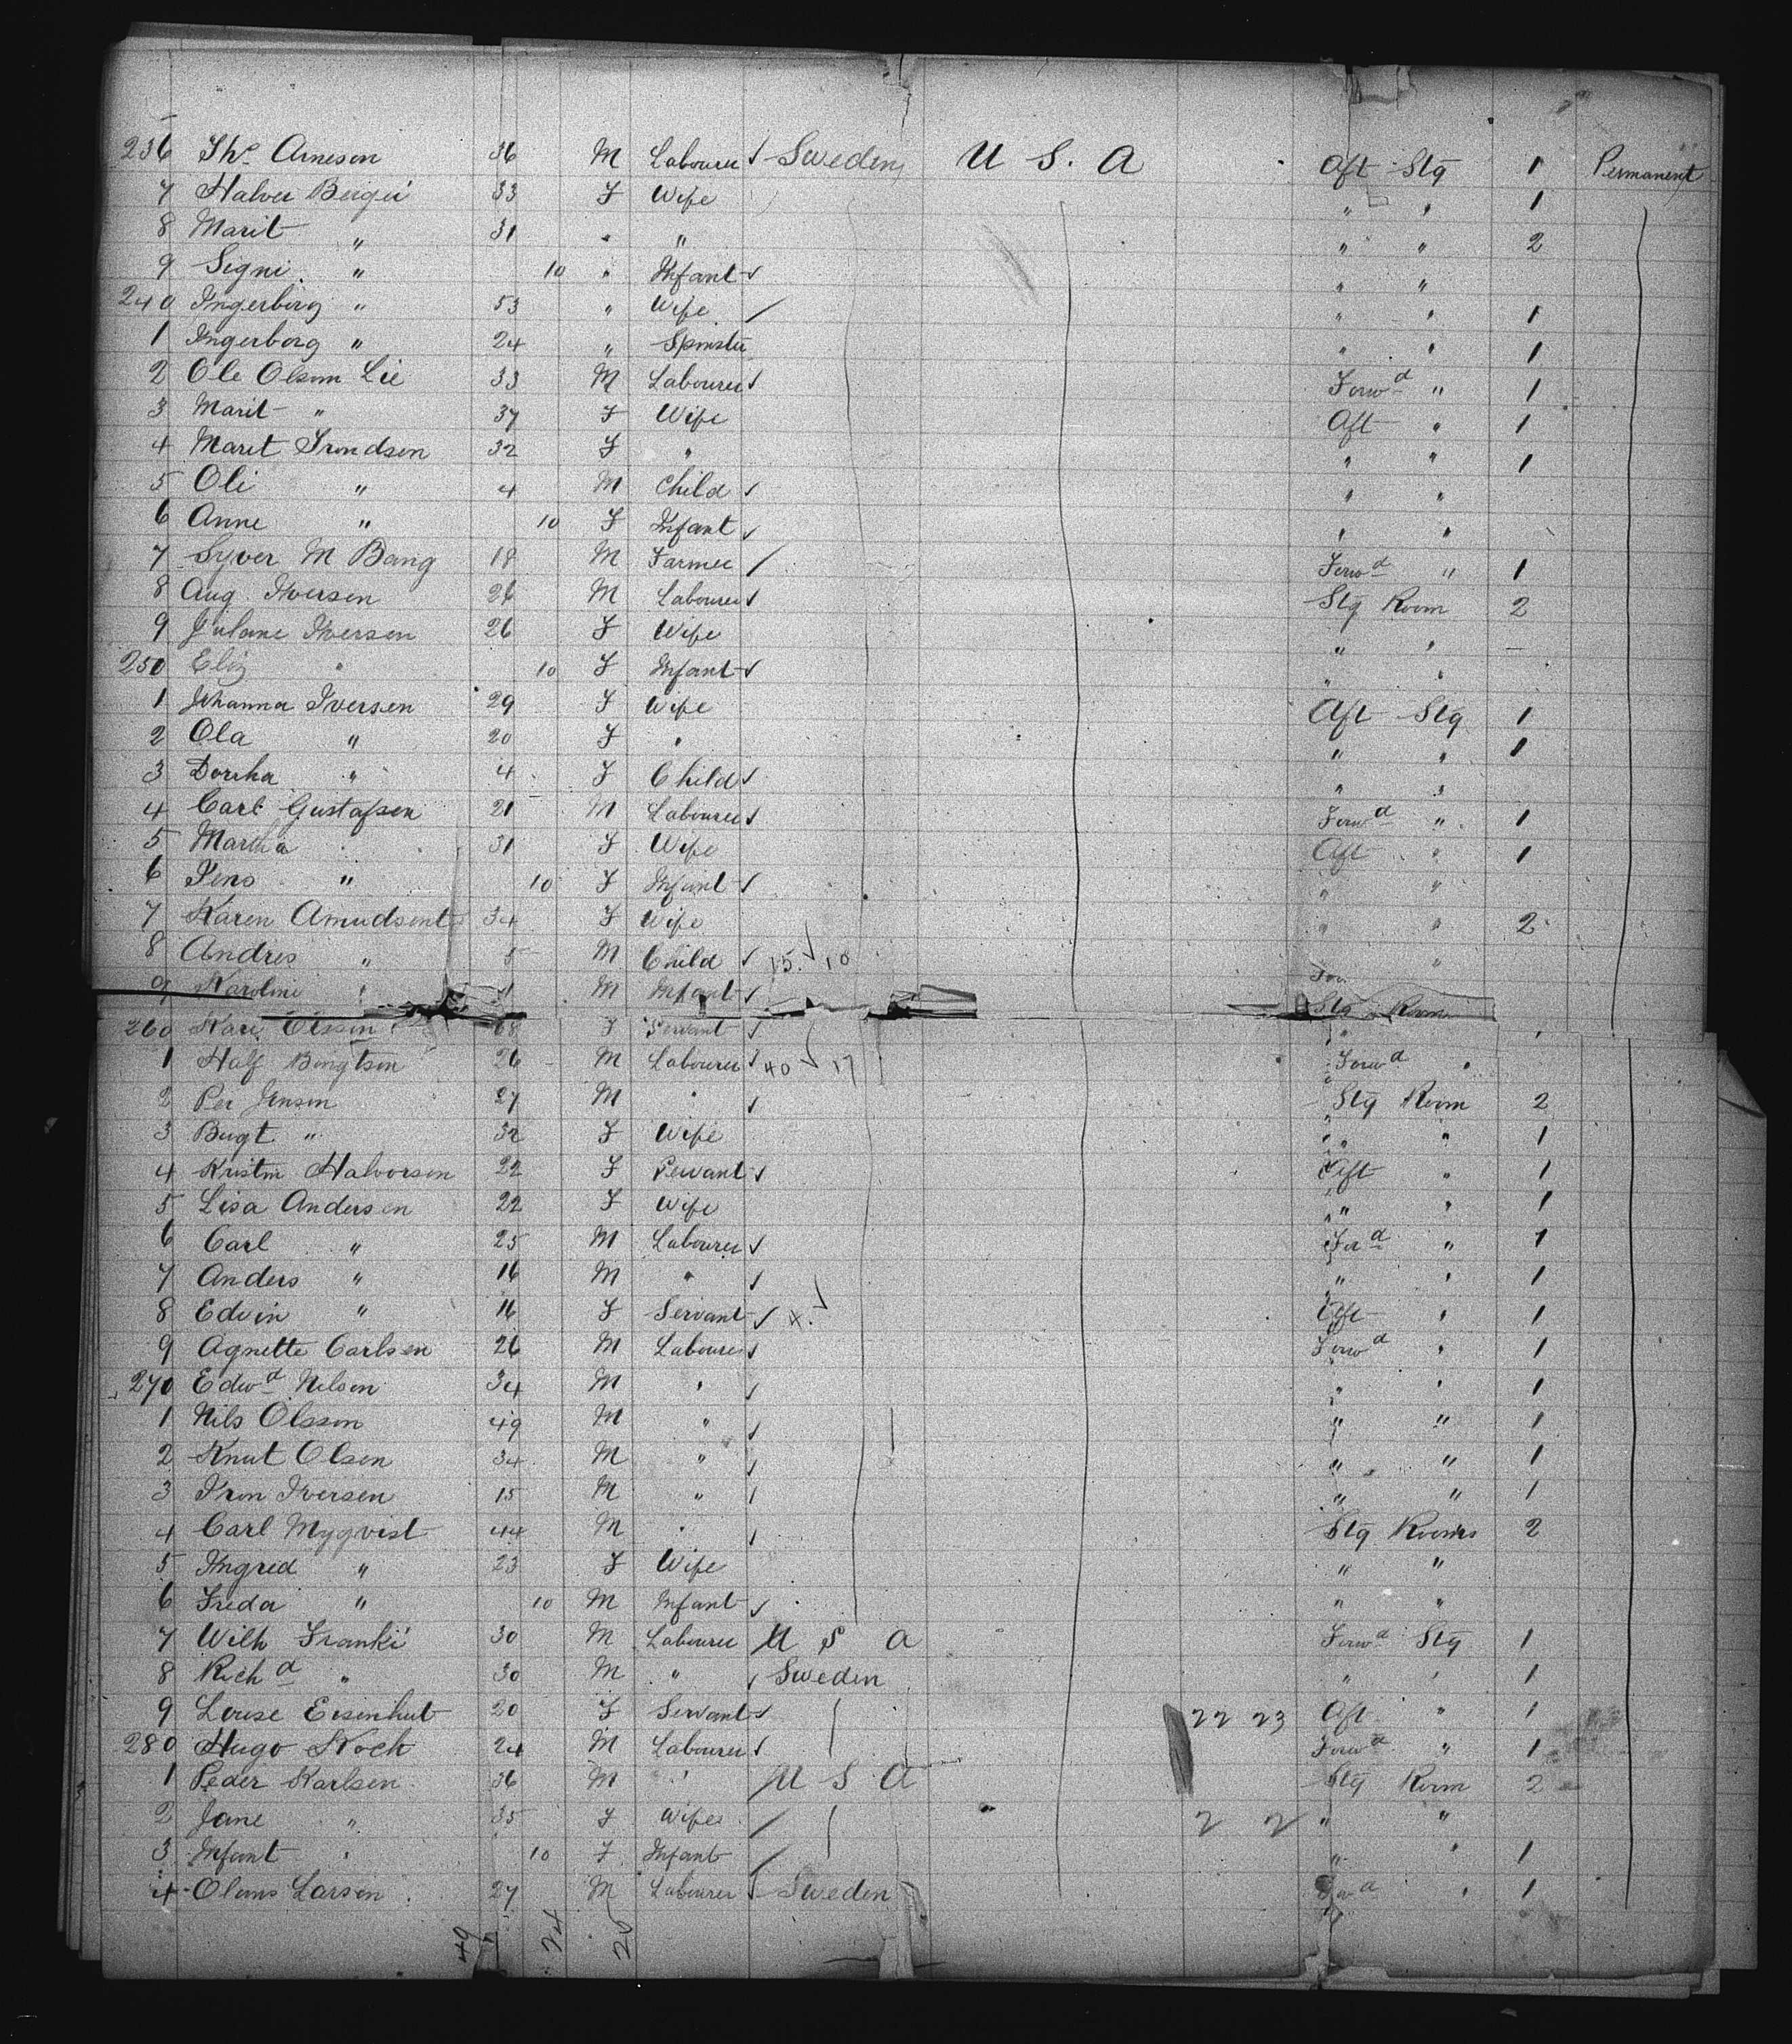 236 Ths Arneson 36 M Labourer ✓ Sweden U S. A Aft Stg 1 Permanent
7 Halver Berger 33 F Wife " " 1
8 Marit " 31 " " " " 2
9 Signi " 10 " Infant ✓ " "
240 Ingerborg " 53 " Wife / " " 1
1 Ingerborg " 24 " Spinster " " 1
2 Ole Olsson Lie 33 M Labourer ✓ Forwd " 1
3 Marit " 37 F Wife Aft " 1
4 Maret Trondsen 32 F " " " 1
5 Oli " 4 M Child ✓ " "
6 Anne " 10 F Infant ✓ " "
7 Syver M Bang 18 M Farmer / Forwd " 1
8 Aug. Iversen 26 M Labourer ✓ Stg Room 2
9 Julane Iversen 26 F Wife " " —
250 Eliz " 10 F Infant ✓ " "
1 Johanna Iversen 29 F Wife Aft Stg 1
2 Ola " 20 F " " " 1
3 Dorrha " 4 F Child ✓ " "
4 Carl Gustafsen 21 M Labourer ✓ Forwd " 1
5 Martha " 31 F Wife Aft " 1
6 Jens " 10 F Infant ✓ " "
7 Karen Amudsent 34 F Wife " " 2
8 Andres " 5 M Child ✓ 15. ✓ 10 "
9 Karolini " M Infant ✓ Stg Room
260 Kari Olsson 68 F Servant ✓ "
1 Half Bengtson 26 M Labourer ✓ 40 ✓ 17 Forwd "
2 Per Jenson 27 M " ✓ Stg Room 2
3 Bugt " 32 F Wife " " 1
4 Kristin Halvorsen 22 F Servant ✓ Aft " 1
5 Lisa Andersen 22 F Wife " " 1
6 Carl " 25 M Labourer ✓ Ford " 1
7 Anders " 16 M " ✓ " " 1
8 Edvin " 16 F Servant ✓ 4. ✓ Aft " 1
9 Agnette Carlsen 26 M Labourer ✓ Forwd " 1
270 Edwd Nelson 34 M " ✓ " " 1
1 Nils Olsson 49 M " ✓ " " 1
2 Knut Olsen 34 M " ✓ " " 1
3 Iron Iversen 15 M " / " " 1
4 Carl Mygvist 44 M " / Stg Rooms 2
5 Ingred " 23 F Wife " "
6 Freda " 10 M Infant ✓ " "
7 Wilh Franki 30 M Labourer U S A Forwd Stg 1
8 Richd " 30 M " ✓ Sweden " " 1
9 Louise Eisenhut 20 F Servant ✓ 22 23 Aft " 1
280 Hugo Koch 24 M Labourer ✓ Forwd " 1
1 Peder Karlsen 36 M " U S A Stg Room 2
2 Jane " 35 F Wife / 2 2 " "
3 Infant " 10 F Infant / " " 1
4 Olans Larsen 27 M Labourer ✓ Sweden Fwd " 1
49 24 26